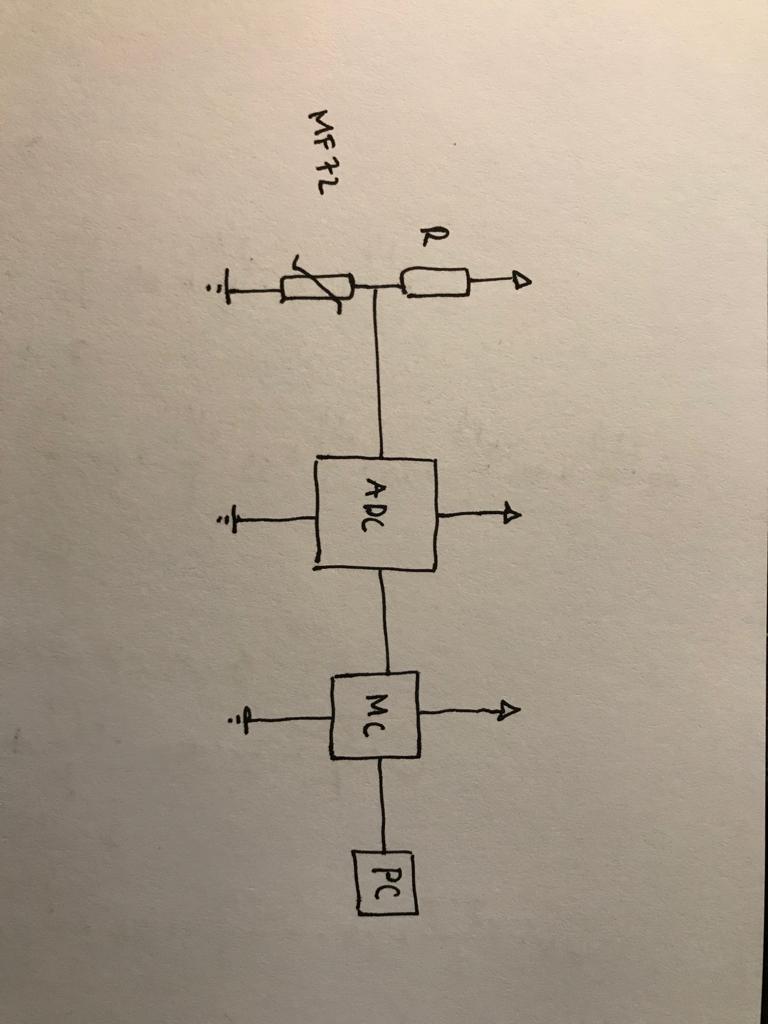 R
MF72
ADC
MC
PC